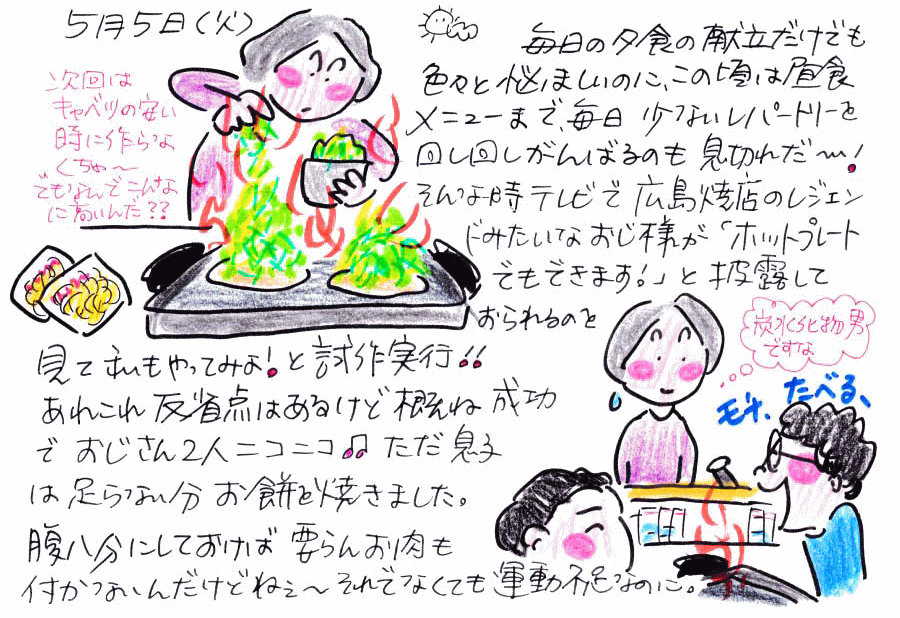 5月5日(火)
次回は
キャベツの安い
時に作らな
くちゃ〜
でもなんでこんな
に高いんだ??
毎日の夕食の献立だけでも
色々と悩ましいのに、この頃は昼食
メニューまで、毎日 少ないレパートリーを
回し回しがんばるのも 息切れだ〜!
そんな時テレビで 広島焼店のレジェン
ドみたいな おじ様が「ホットプレート
でもできます!」と 披露して
おられるのを
見て 私もやってみよ!と 試作実行!!
あれこれ 反省点はあるけど 概ね 成功
で おじさん2人 ニコニコ♫ ただ 息子
は 足らない分 お餅を焼きました。
腹八分にしておけば 要らんお肉も
付かないんだけどねぇ〜 それでなくても 運動不足なのに。
炭水化物男
ですな
モチ、たべる、